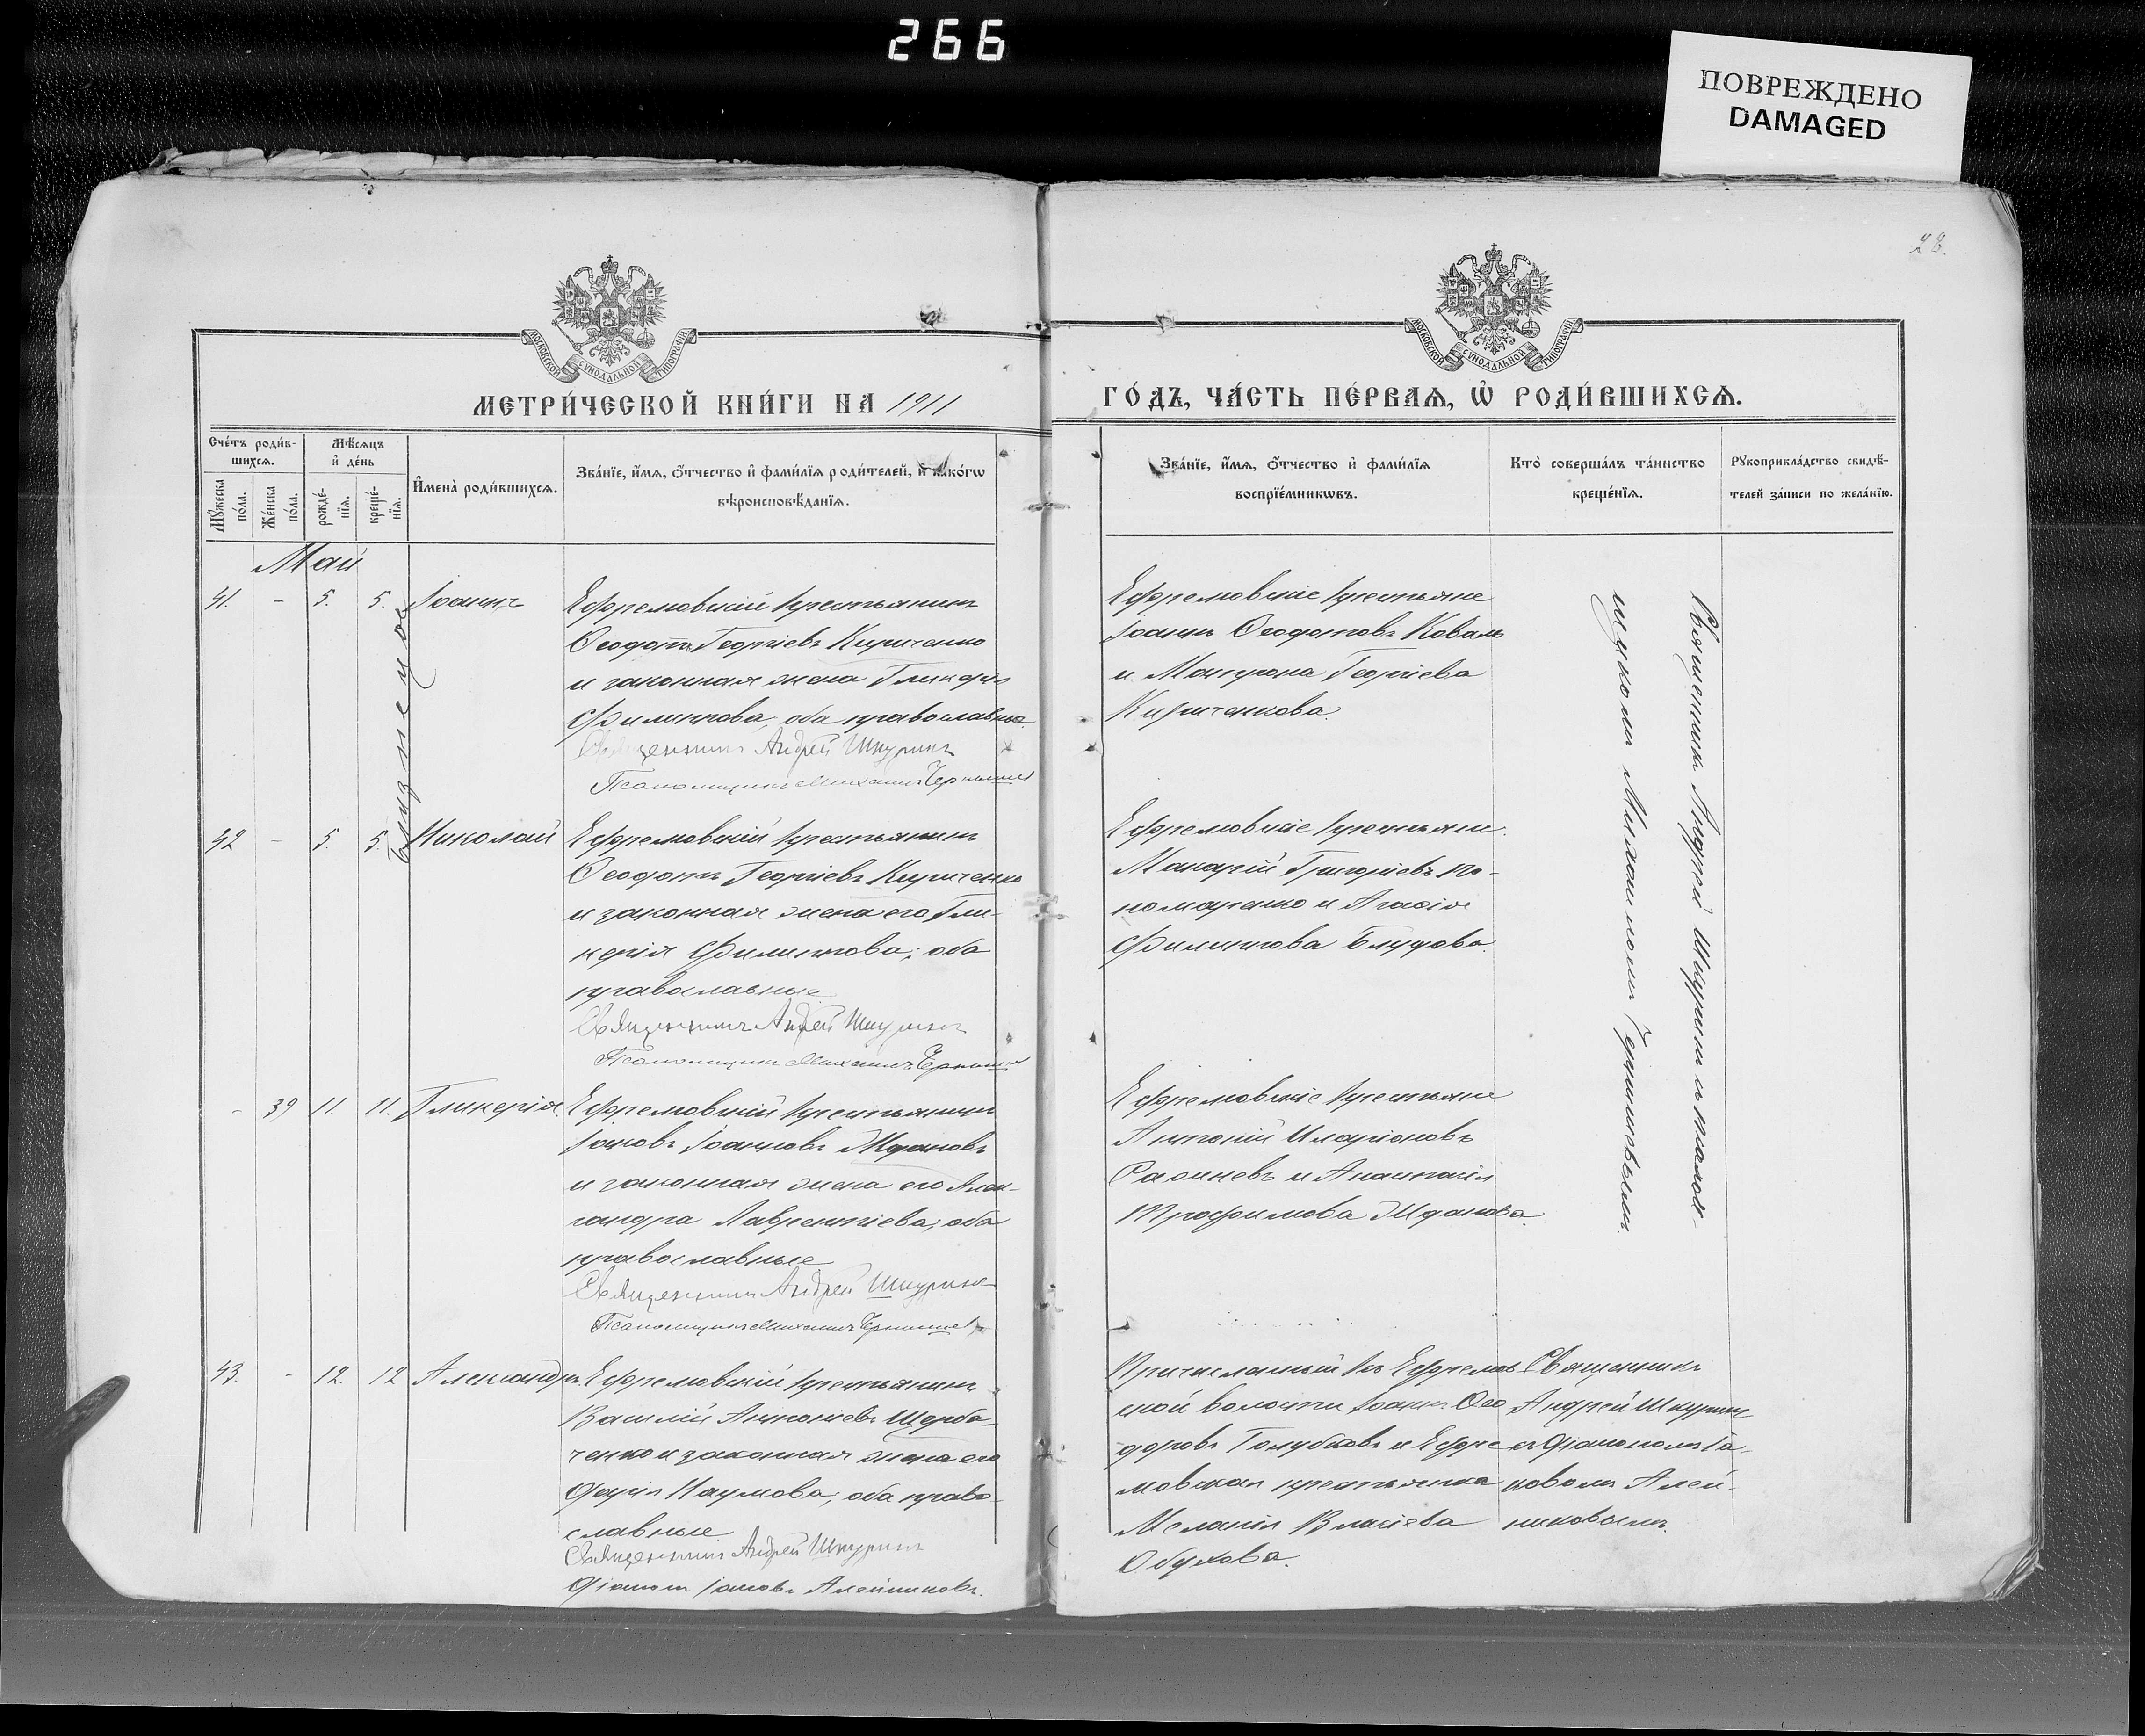 266
ПОВРЕЖДЕНО
DAMAGED
28.
МОСКОВСКОЙ СУНОДАЛЬНОЙ ТИПОГРАФІИ
МОСКОВСКОЙ СУНОДАЛЬНОЙ ТИПОГРАФІИ
МЕТРИ́ЧЕСКОЙ КНИ́ГИ НА 1911
ГО́ДЪ, ЧА́СТЬ ПЕ́РВАѦ, Ѡ҆ РОДИ́ВШИХСѦ.
Сче́тъ роди́в-
шихсѧ.
Мѣ́сѧцъ
и҆ де́нь
Мꙋ́жеска
по́ла.
Же́нска
по́ла.
рожде́-
нїѧ.
креще́-
нїѧ.
И҆мена̀ роди́вшихсѧ.
Зва́нїе, и҆́мѧ, ѻ҆́тчество и҆ фами́лїѧ роди́телей, и҆ како́гѡ
вѣроисповѣ́данїѧ.
Зва́нїе, и҆́мѧ, ѻ҆́тчество и҆ фами́лїѧ
воспрїе́мникѡвъ.
Кто̀ соверша́лъ та́инство
креще́нїѧ.
Рꙋкоприкла́дство свидѣ́-
телей за́писи по жела́нїю.
Май
41. - 5. 5. Іоаннъ
Ефремовскій крестьянинъ
Ѳеодотъ Георгіевъ Кириченко
и законная жена
Филиппова, оба православные.
Священникъ Андрей Шкуринъ
Псаломщикъ Михаилъ Чернышевъ
Ефремовскіе крестьяне
Іоаннъ Ѳеодотовъ Коваль
и Матрона Георгіева
Кириченкова.
близнецы
42 - 5. 5. Николай
Ефремовскій крестьянинъ
Ѳеодотъ Георгіевъ Кириченко
и законная жена его Гли-
керія Филиппова; оба
православные
Священникъ Андрей Шкуринъ
Псаломщикъ Михаилъ Чернышевъ
Ефремовскіе крестьяне
Макарій Григоріевъ По-
номаренко и Агафія
Филиппова
- 39 11. 11. Гликерія
Ефремовскій крестьянинъ
Іаковъ Іоанновъ Ждановъ
и законная жена его Алек-
сандра Лаврентіева; оба
православные
Священникъ Андрей Шкуринъ
Псаломщикъ Михаилъ Чернышевъ
Ефремовскіе крестьяне
Антоній Иларіоновъ
и Анастасія
Трофимова Жданова.
Священникъ Андрей Шкуринъ съ псалом-
щикомъ Михаиломъ Чернышевымъ.
43. - 12. 12 Александръ
Ефремовскій крестьянинъ
Василій Антоніевъ Щерба-
ченко и законная жена его
Наумова, оба право-
славные
Священникъ Андрей Шкуринъ
Діаконъ Іаковъ Алейниковъ.
Причисленный къ Ефремов-
ской волости Іоаннъ Ѳео-
доровъ Голубковъ и Ефре-
мовская крестьянка
Меланія Власіева
Обухова.
Священникъ
Андрей Шкуринъ
съ діакономъ Іа-
ковомъ Алей-
никовымъ.